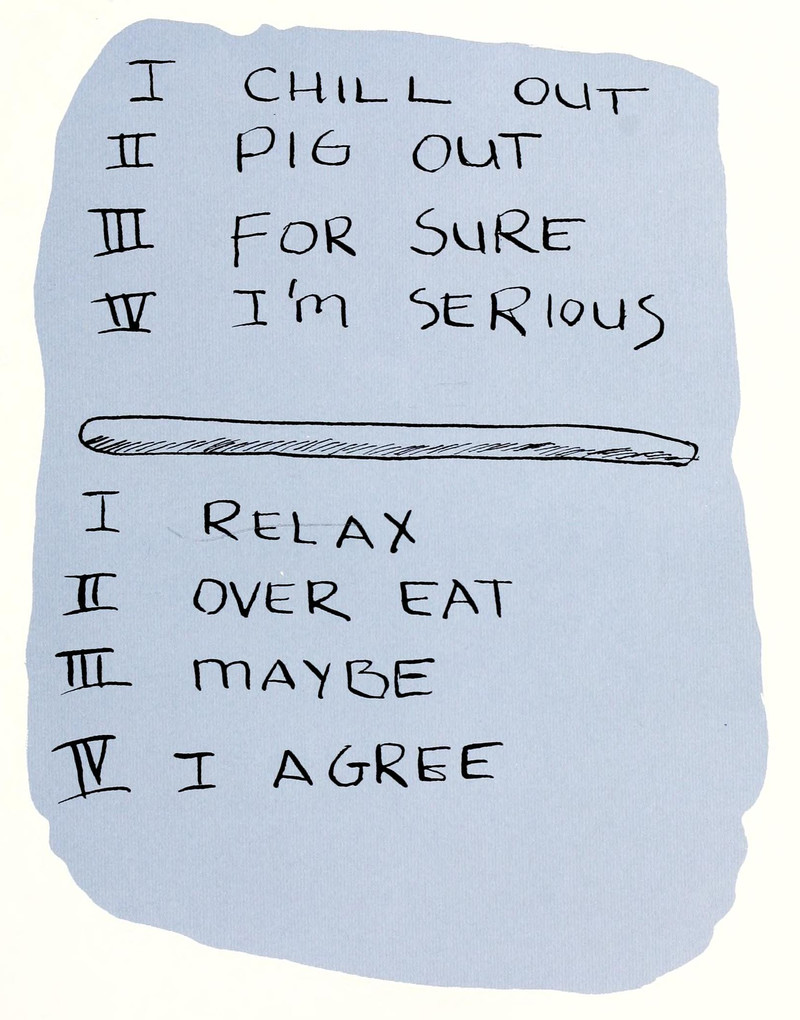 I CHILL OUT
II PIG OUT
III FOR SURE
IV I'm SERIOUS
I RELAX
II OVER EAT
III mAYBE
IV I AGREE